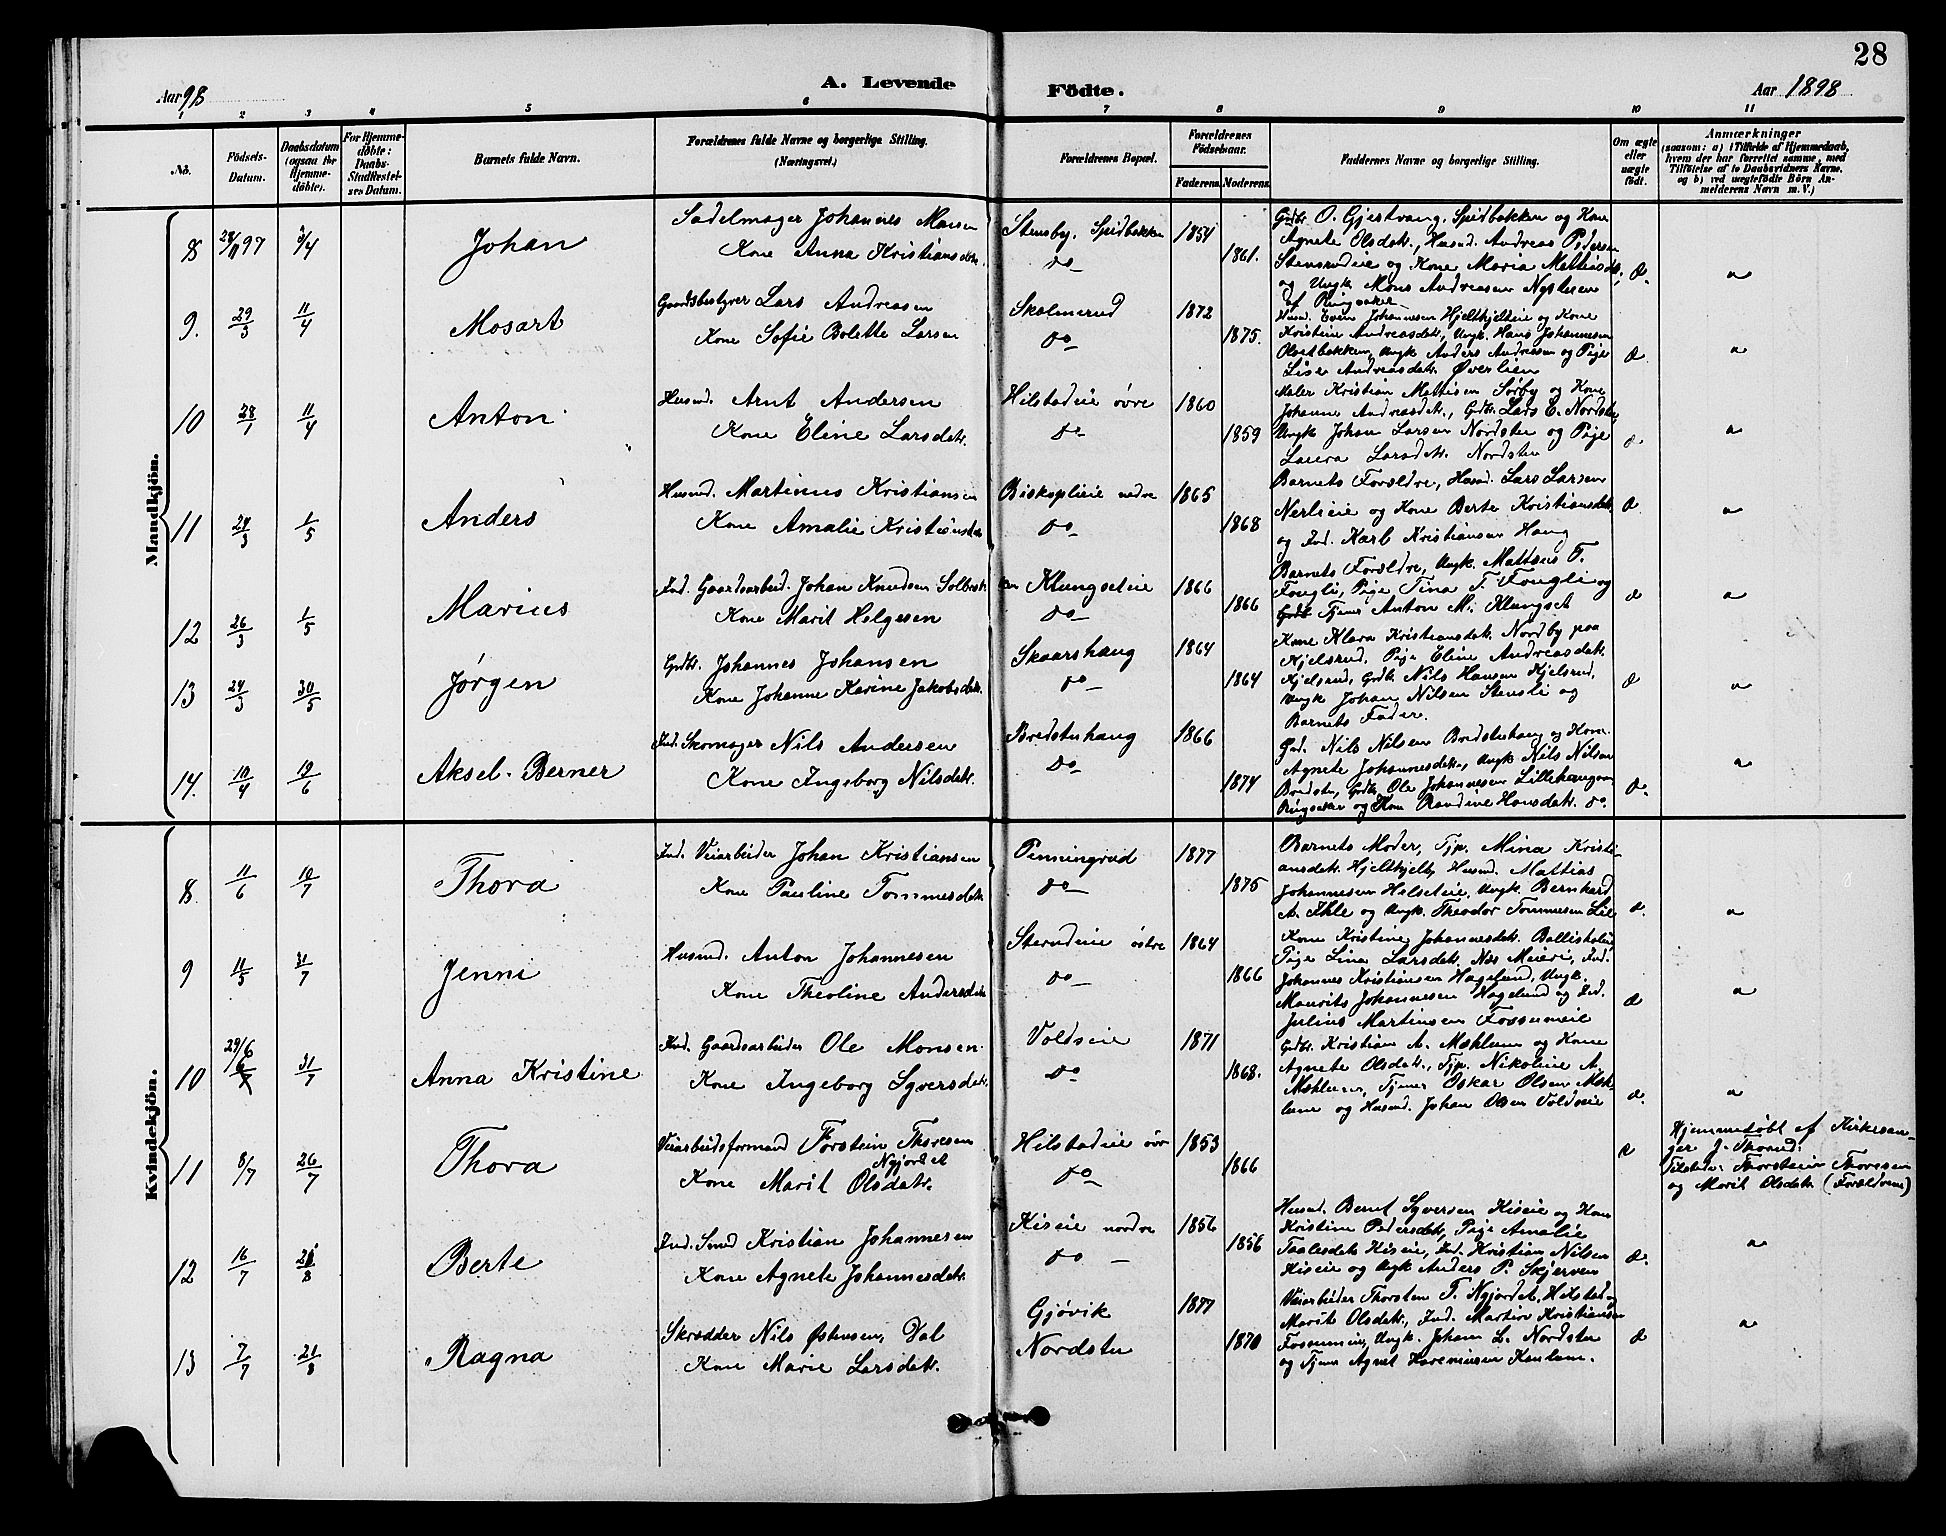 28
A. Levende Födte.
Aar 98
Aar 1898
1 2 3 4 5 6 7 8 9 10 11
No.
Födsels-Datum.
Daabsdatum (ogsaa for Hjemmedöbte).
For Hjemmedöbte: Daabs-Stadfæstelses Datum.
Barnets fulde Navn.
Forældrenes fulde Navne og borgerlige Stilling. (Næringsvei.)
Forældrenes Bopæl.
Forældrenes Födselsaar.
Faderens. Moderens.
Faddernes Navne og borgerlige Stilling.
Om ægte eller uægte födt.
Anmærkninger
(saasom: a) i Tilfælde af Hjemmedaab, hvem der har forrettet samme, med Tilföielse af to Daabsvidners Navne, og b) ved uægtefödte Börn Anmelderens Navn m. V.)
Mandkjön.
8 28/11 97 3/4 Johan
Sadelmager Johannes Mansen
Kone Anna Kristiansdatr.
Stensby, Spidbakken
do
1854
1861.
Grdbr. O. Gjertvang, Spidbakken og Kone
Agnete Olsdatr., Husmd. Andreas Pedersen
Stensrudeie og Kone Maria Mattisdtr,
og Ungk. Mons Andreasen Nystuen
af Ringsaker
9. 29/3 11/4 Mosart
Gaardsbestyrer Lars Andreasen
Kone Sofie Bolette Larsen
Skolmerud
do
1872
1875.
Husmd. Even Johannesen Hjeltkjelteie og Kone
Kristine Andreasdatr., Ungk. Hans Johannesen
Olsetbakken, Ungk Anders Andreasen og Pige
Lise Andreasdatr. Øverlien
10 28/1 11/4 Anton
Husmd. Arnt Andersen
Kone Eline Larsdatr.
Hilstadeie øvre
do
1860
1859
Maler Kristian Mattisen Sørby og Kone
Johanne Andreasdatr., Grdbr. Lars E. Nordstu,
Ungk Johan Larsen Nordstu og Pige
Laura Larsdatr. Nordstu
11 24/3 1/5 Anders
Husmd. Martinus Kristiansen
Kone Amalie Kristiansdatr
Biskoplieie nedre
do
1865
1868
Barnets Forældre, Husmd. Lars Larsen
Nerlieie og Kone Berte Kristiansdatr
og Ind. Karl Kristiansen Haug
12 26/3 1/5 Marius
Ind. Gaardsarbeid. Johan Knudsen Solbrek
Kone Marit Helgesen
Klungseteie
do
1866
1866
Barnets Forældre, Ungk. Matteus T.
Fougli, Pige Tina T. Fougli og
Tjener Anton M. Klungset
13 24/3 30/5 Jørgen
Grdbr. Johannes Johansen
Kone Johanne Karine Jakobsdatr.
Skaarshaug
do
1864
1864
Kone Klara Kristiansdatr. Nordby paa
Kjelsrud, Pige Eline Andreasdatr.
Kjelsrud, Grdbr Nils Hansen Kjelsrud,
Ungk Johan Nilsen Stensli og
Barnets Fader.
14. 10/4 19/6 Aksel Berner
Ind. Skomager Nils Andersen
Kone Ingeborg Nilsdatr.
Bredstuhaug
do
1866
1874
Grd. Nils Nilsen Bredstuhaug og Kone
Agnete Johannesdatr., Ungk Nils Nilsen
Bredstu, Grdbr. Ole Johannesen Lillehaugen
Ringsaker og Kone Randine Hansdatr. do.
Kvindekjön.
8. 11/6 10/7 Thora
Ind. Veiarbeider Johan Kristiansen
Kone Pauline Tommesdatr
Penningrud
do
1877
1875
Barnets Moder, Tjp. Mina Kristi-
ansdatr. Hjeltkjelt, Husmd. Mattias
Johannesen Helseteie, Ungk. Bernhard
A. Ihle og Ungk. Theodor Tommesen Lie
9 11/5 31/7 Jenni
Husmd. Anton Johannesen
Kone Theoline Andersdatr
Sterudeie østre
do
1864
1866
Kone Kristine Johannesdatr. Ballishol
Pige Lina Larsdatr. Næs Meieri, Ind.
Johannes Kristiansen Hagelund, Ungk.
Maurits Johannesen Hagelund og Ind.
Julius Martinsen Fossumeie
10 29/6 31/7 Anna Kristine
Ind. Gaardsarbeider Ole Monsen
Kone Ingeborg Syversdatr.
Voldseie
do
1871
1868.
Grdbr. Kristian A. Mæhlum og Kone
Agnete Olsdatr., Tjp. Nikoline A.
Mæhlum, Tjener Oskar Olsen Mæh-
lum og Husmd. Johan Olsen Voldseie
11 8/7 26/7 Thora
Veiarbeidsformand Torstein Thoresen
Nyjordet
Kone Marit Olsdatr.
Hilstadeie øvr
do
1853
1866
Hjemmedøbt af Kirkesan-
ger J. Skorud.
Thorstein Thoresen
og Marit Olsdatr (Forældrene)
12 16/7 21/8 Berte
Ind. Smed Kristian Johannesen
Kone Agnete Johannesdatr.
Kiseie nordre
do
1856
1856
Husmd. Bernt Syversen Kiseie og Kone
Kristine Pedersdatr, Pige Amalie
Taalesdatr Kiseie, Ind. Kristian Nilsen
Kiseie og Ungk Anders P. Skjerven
13 7/7 21/8 Ragna
Skrædder Nils Østensen, Dal
Kone Marie Larsdatr.
Gjøvik
Nordstu
1877
1870
Veiarbeider Thorsten T. Nyjordet, Hilstad og
Marit Olsdatr., Ind. Martin Kristiansen
Fossumeie, Ungk. Johan L. Nordstu